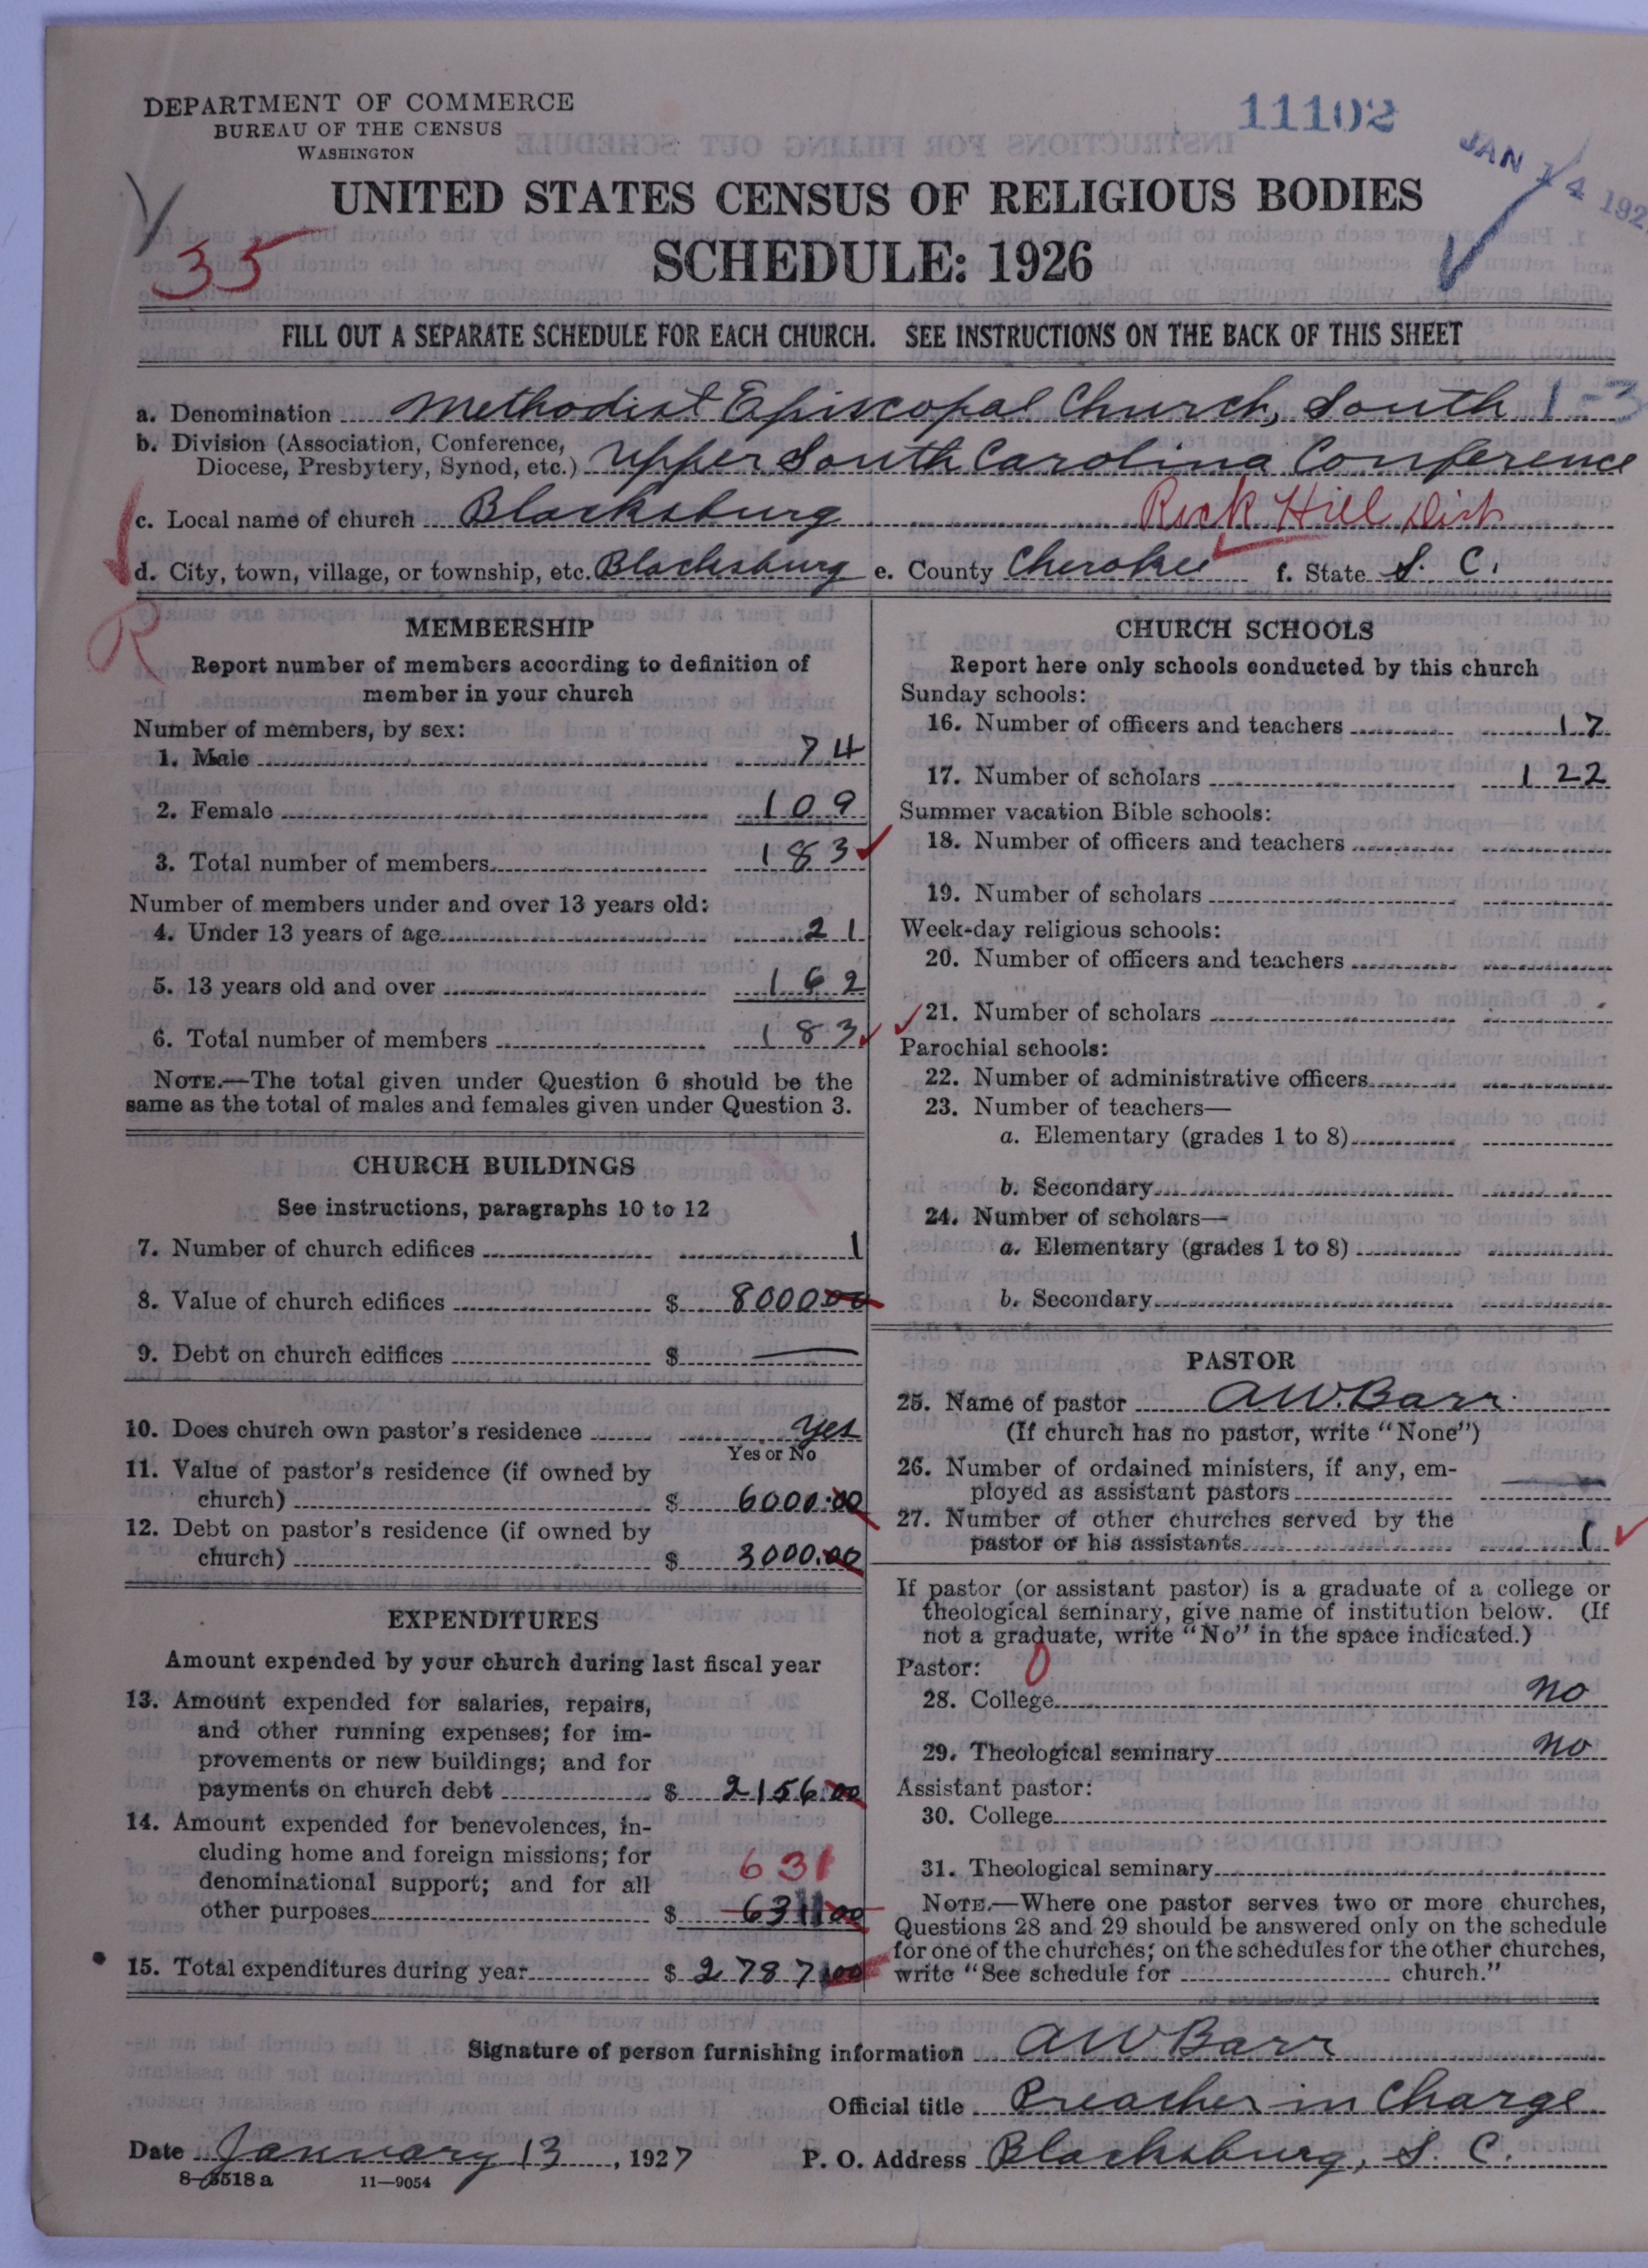 DEPARTMENT OF COMMERCE
BUREAU OF THE CENSUS
WASHINGTON
11102
JAN 14 192
UNITED STATES CENSUS OF RELIGIOUS BODIES
35
SCHEDULE: 1926
FILL OUT A SEPARATE SCHEDULE FOR EACH CHURCH. SEE INSTRUCTIONS ON THE BACK OF THIS SHEET
a. Denomination Methodist Episcopal Church, South 1-3
b. Division (Association, Conference,
Diocese, Presbytery, Synod, etc.) Upper South Carolina Conference
c. Local name of church Blacksburg Rock Hill Dist
d. City, town, village, or township, etc. Blacksburg e. County Cherokee f. State S. C.
R
MEMBERSHIP
Report number of members according to definition of
member in your church
Number of members, by sex:
1. Male 74
2. Female 109
3. Total number of members 183
Number of members under and over 13 years old:
4. Under 13 years of age 21
5. 13 years old and over 162
6. Total number of members 183
NOTE.—The total given under Question 6 should be the
same as the total of males and females given under Question 3.
CHURCH BUILDINGS
See instructions, paragraphs 10 to 12
7. Number of church edifices 1
8. Value of church edifices $ 8000 00
9. Debt on church edifices $ —
10. Does church own pastor's residence yes
Yes or No
11. Value of pastor's residence (if owned by
church) $ 6000.00
12. Debt on pastor's residence (if owned by
church) $ 3000.00
EXPENDITURES
Amount expended by your church during last fiscal year
13. Amount expended for salaries, repairs,
and other running expenses; for im-
provements or new buildings; and for
payments on church debt $ 2156.00
14. Amount expended for benevolences, in-
cluding home and foreign missions; for
denominational support; and for all 631
other purposes $ 631 00
15. Total expenditures during year $ 2787 00
CHURCH SCHOOLS
Report here only schools conducted by this church
Sunday schools:
16. Number of officers and teachers 17
17. Number of scholars 122
Summer vacation Bible schools:
18. Number of officers and teachers
19. Number of scholars
Week-day religious schools:
20. Number of officers and teachers
21. Number of scholars
Parochial schools:
22. Number of administrative officers
23. Number of teachers—
a. Elementary (grades 1 to 8)
b. Secondary
24. Number of scholars—
a. Elementary (grades 1 to 8)
b. Secondary
PASTOR
25. Name of pastor A.W. Barr
(If church has no pastor, write "None")
26. Number of ordained ministers, if any, em-
ployed as assistant pastors —
27. Number of other churches served by the
pastor or his assistants 1
If pastor (or assistant pastor) is a graduate of a college or
theological seminary, give name of institution below. (If
not a graduate, write "No" in the space indicated.)
Pastor: 0
28. College no
29. Theological seminary no
Assistant pastor:
30. College
31. Theological seminary
NOTE.—Where one pastor serves two or more churches,
Questions 28 and 29 should be answered only on the schedule
for one of the churches; on the schedules for the other churches,
write "See schedule for church."
Signature of person furnishing information A W Barr
Official title Preacher in Charge
Date January 13, 1927 P. O. Address Blacksburg, S. C.
8-3518 a 11—9054